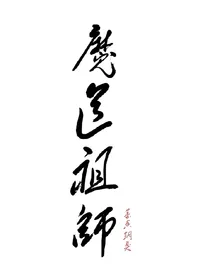 魔道祖師
墨香銅臭